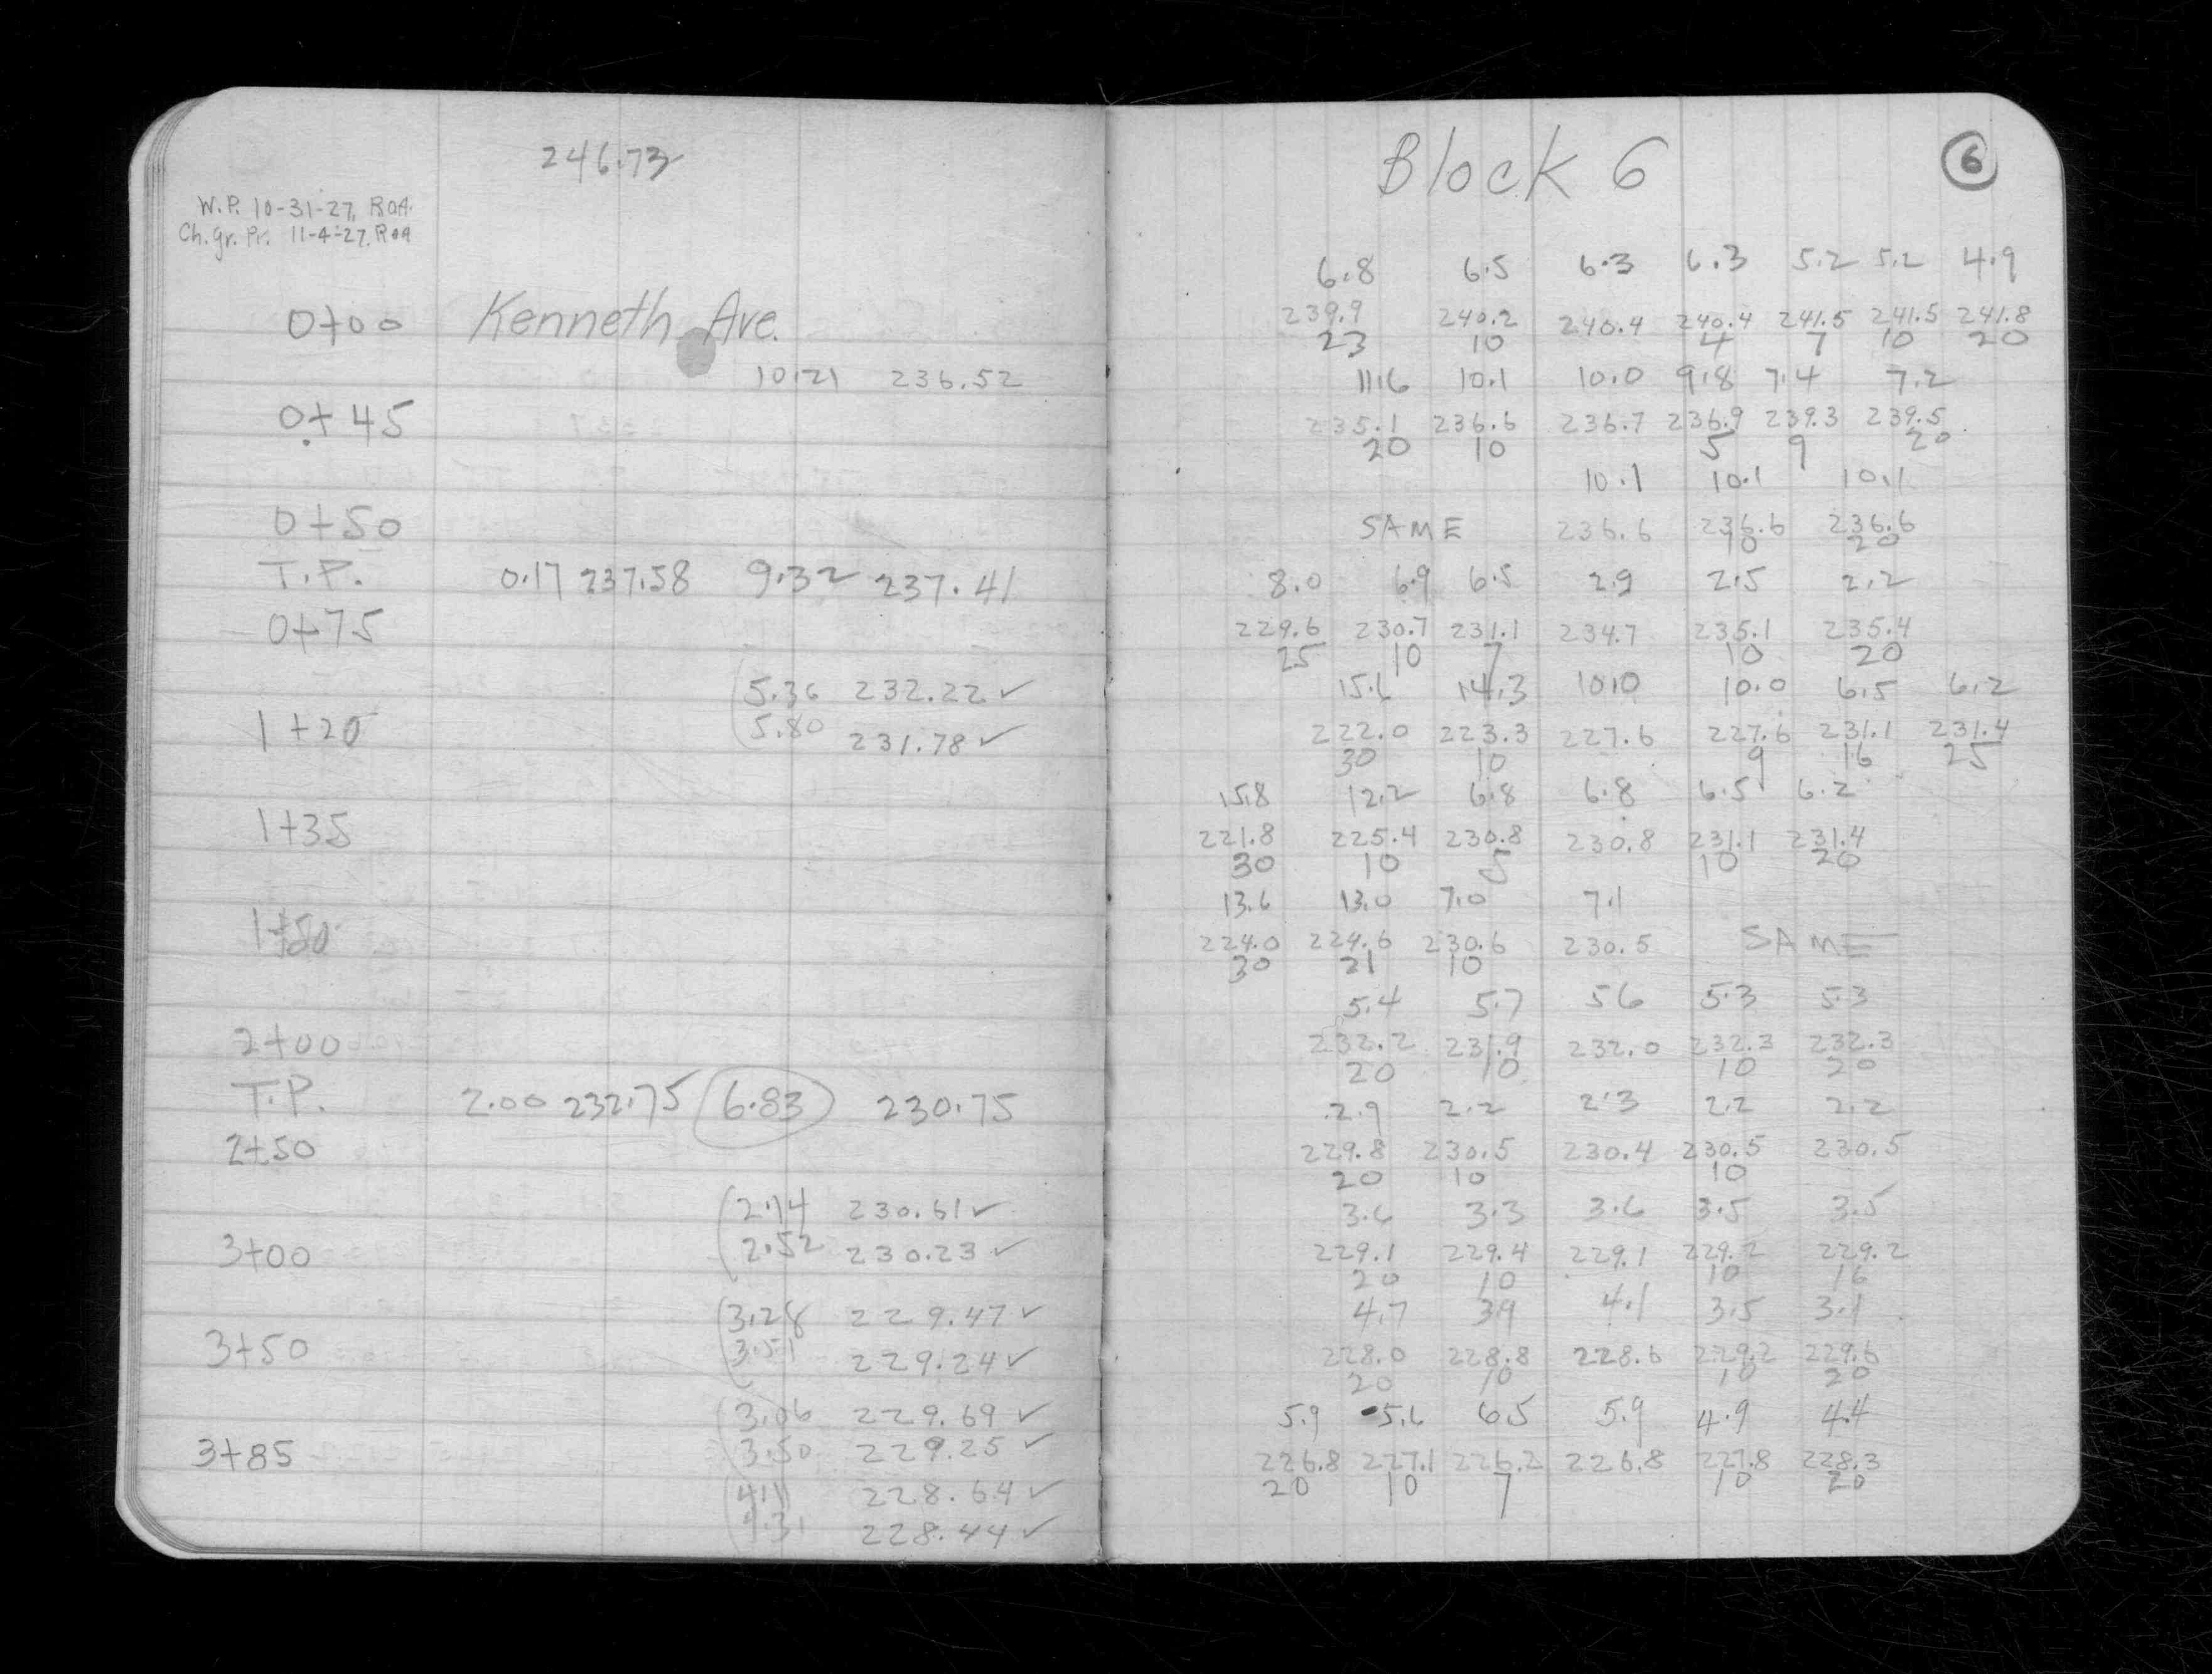 246.73
W.P. 10-31-27, ROA.
Ch. gr. Pr. 11-4-27, Roa
0+00 Kenneth Ave.
10.21 236.52
0+45
0+50
T.P. 0.17 237.58 9.32 237.41
0+75
5.36 232.22 ✓
1+20 5.80 231.78 ✓
1+35
1+50
2+00
T.P. 2.00 232.75 6.83 230.75
2+50
2.14 230.61 ✓
3+00 2.52 230.23 ✓
3.28 229.47 ✓
3+50 3.51 229.24 ✓
3.06 229.69 ✓
3+85 3.50 229.25 ✓
4.11 228.64 ✓
4.31 228.44 ✓
Block 6
6
6.8 6.5 6.3 6.3 5.2 5.2 4.9
239.9 240.2 240.4 240.4 241.5 241.5 241.8
23 10 4 7 10 20
11.6 10.1 10.0 9.8 7.4 7.2
235.1 236.6 236.7 236.9 239.3 239.5
20 10 5 9 20
10.1 10.1 10.1
SAME 236.6 236.6 236.6
10 20
8.0 6.9 6.5 2.9 2.5 2.2
229.6 230.7 231.1 234.7 235.1 235.4
25 10 7 10 20
15.6 14.3 10.0 10.0 6.5 6.2
222.0 223.3 227.6 227.6 231.1 231.4
30 10 9 16 25
15.8 12.2 6.8 6.8 6.5 6.2
221.8 225.4 230.8 230.8 231.1 231.4
30 10 5 10 20
13.6 13.0 7.0 7.1
224.0 224.6 230.6 230.5 SAME
30 21 10
5.4 5.7 5.6 5.3 5.3
232.2 231.9 232.0 232.3 232.3
20 10 10 20
2.9 2.2 2.3 2.2 2.2
229.8 230.5 230.4 230.5 230.5
20 10 10
3.6 3.3 3.6 3.5 3.5
229.1 229.4 229.1 229.2 229.2
20 10 10 16
4.7 3.9 4.1 3.5 3.1
228.0 228.8 228.6 229.2 229.6
20 10 10 20
5.9 5.6 6.5 5.9 4.9 4.4
226.8 227.1 226.2 226.8 227.8 228.3
20 10 7 10 20